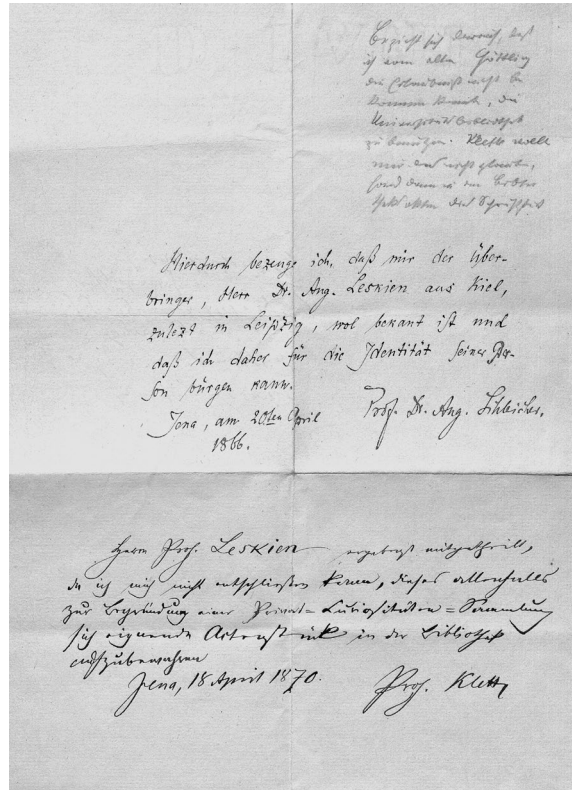 Bezieht sich darauf, daß
ich vom alten Göttling
die Erlaubniß nicht be
kommen konnte, die
Universitätsbibliothek
zu benutzen. Klette wollte
mir das nicht glauben,
fand dann in den Biblio
thekakten dies Schriftstück
Hierdurch bezeuge ich, daß mir der Über-
bringer, Herr Dr. Aug. Leskien aus Kiel,
zulezt in Leipzig, wol bekant ist und
daß ich daher für die Identität seiner Per-
son bürgen kann.
Jena, am 20ten April
1866.
Prof. Dr. Aug. Schleicher.
Herrn Prof. Leskien ergebenst mitgetheilt,
da ich mich nicht entschließen kann, dieses allenfalls
zur Begründung einer Privat-Curiositäten-Sammlung
sich eignende Actenstück in der Bibliothek
aufzubewahren
Jena, 18 April 1870.
Prof. Klette